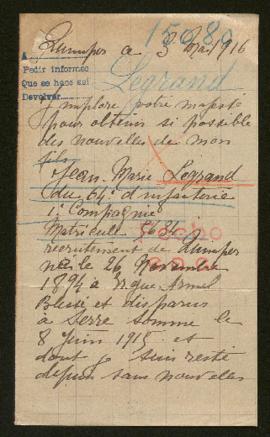 15080
Quimper ce 3 Mai 1916
A
Pedir informes
Que se hace así
Devolver
Legrand
J implore votre majesté
pour obtenir si possible
des nouvelles de mon
fils
Jean Marie Legrand
du 64e d'infanterie
1e Compagnie
Matricule 5684
recrutement de Quimper
né le 26 Novembre
1894 à
Blessé et disparus
à Serre Somme le
8 juin 1915 et
dont je suis resté
depuis sans nouvelles